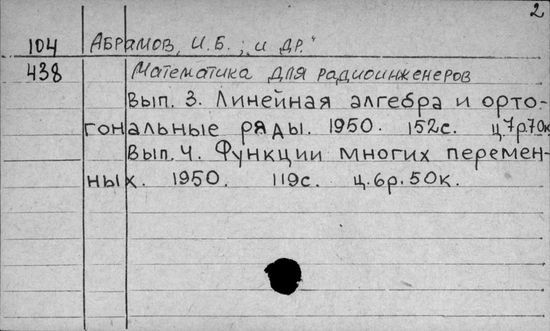 2
104 Абрамов, И.Б.; и др.
438 Математика для радиоинженеров
Вып. 3. Линейная алгебра и орто-
гональные ряды. 1950. 152с. ц 7р70к
Вып. 4. Функции многих перемен-
ных. 1950. 119с. ц. 6р. 50к.